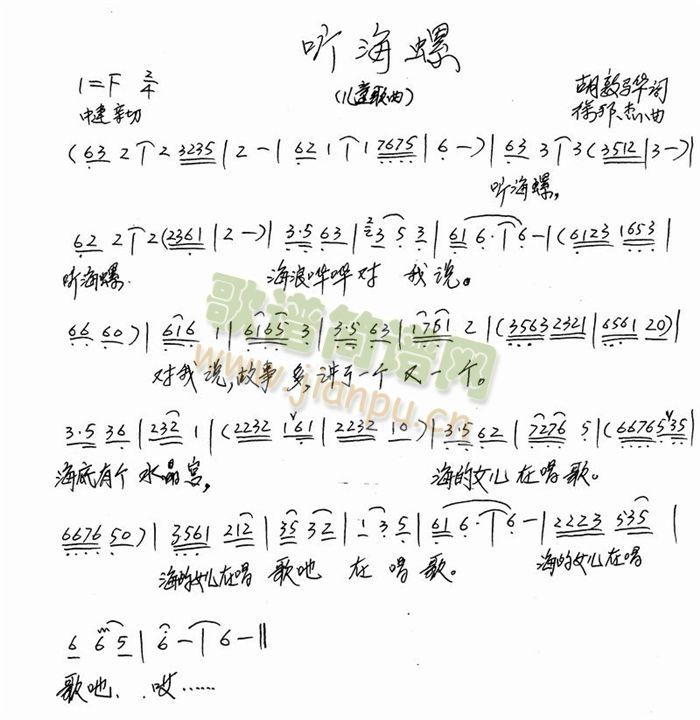 听海螺
(儿童歌曲)
1=F 2/4
中速 亲切
胡敦骅词
徐邦杰曲
(63 2 | 2 3235 | 2 - | 62 1 | 1 7675 | 6 -) | 63 3 | 3 (3512 | 3 -) |
听海螺,
62 2 | 2 (2361 | 2 -) | 3·5 63 | 2 3 5 3 | 61 6· | 6 - | (6123 1653 |
听海螺. 海浪哗哗对 我 说。
66 60) | 616 1 | 6165 3 | 3·5 63 | 1761 2 | (3563 2321 | 6561 20) |
对我 说,故事 多,讲了一个 又一个。
3·5 36 | 232 1 | (2232 161 | 2232 10) | 3·5 62 | 7276 5 | (6676535 |
海底有个 水晶宫, 海的女儿 在唱歌。
6676 50) | 3561 212 | 35 32 | 1 3 5 | 61 6· | 6 - | 2223 535 |
海的女儿在唱 歌吔 在 唱 歌。 海的女儿在唱
6 6 5 | 6 - | 6 - ‖
歌吔、 哎……
歌谱简谱网
www.jianpu.cn